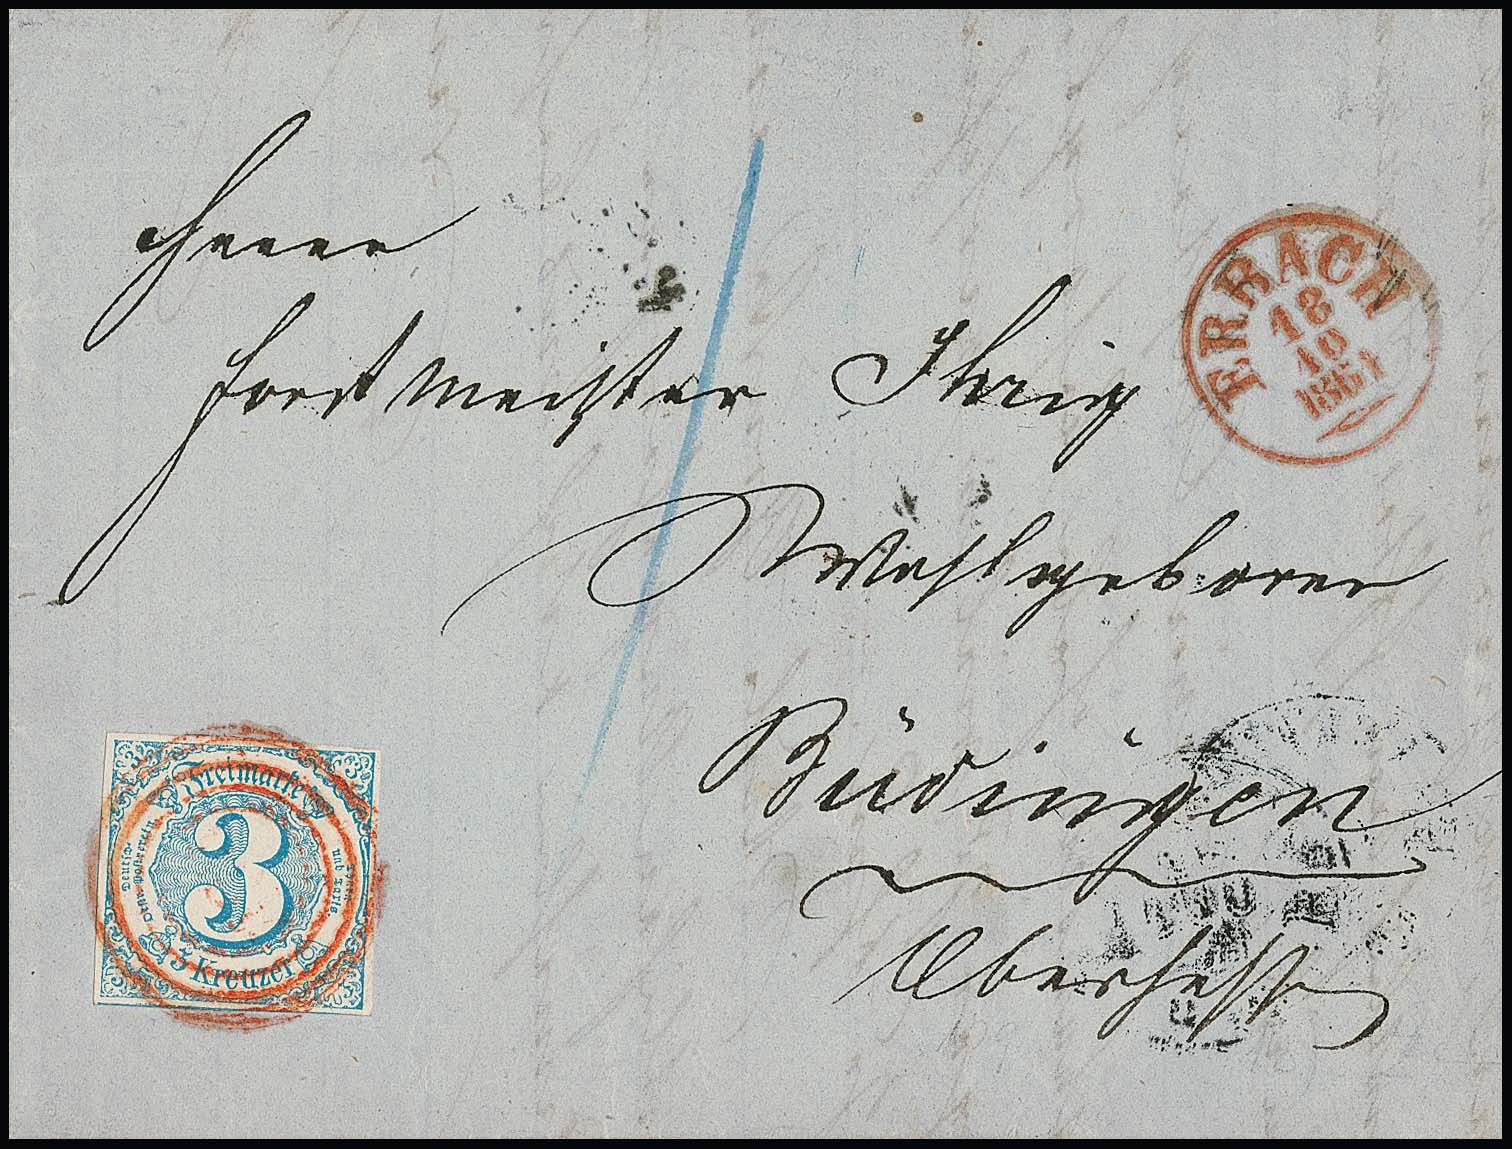 Herrn
Forstmeister Ihrig
Wohlgeboren
Büdingen
Oberhess
ERBACH
18
10
1861
Freimarke
3
3 Kreuzer
Deutsch-
Östr. Postverein
und Taxis